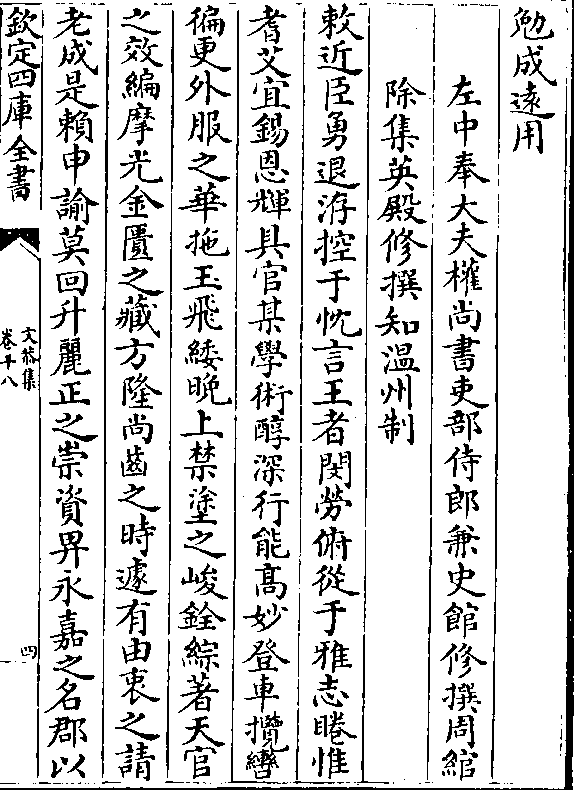 勉成遠用
左中奉大夫權尚書吏部侍郎兼史館修撰周綰
除集英殿修撰知溫州制
敕近臣勇退洊控于忱言王者閔勞俯從于雅志睠惟
耆艾宜錫恩輝具官某學術醇深行能髙妙登車攬轡
徧更外服之華拖玉飛緌晩上禁塗之峻銓綜著天官
之效編摩光金匱之藏方隆尚齒之時遽有由衷之請
老成是賴申諭莫回升麗正之崇資畀永嘉之名郡以
欽定四庫全書
文恭集
卷十八
四